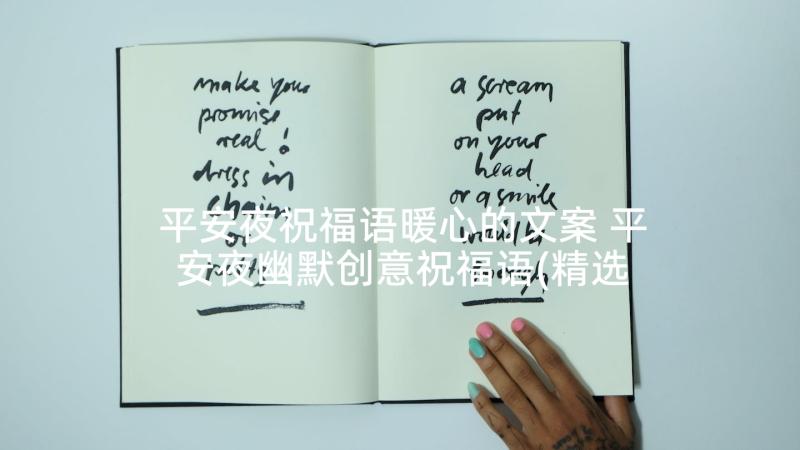 make your
promise
real !
dress in
chains
or
a scream
put
on your
head
or a smile
would be
enough
平安夜祝福语暖心的文案 平
安夜幽默创意祝福语(精选